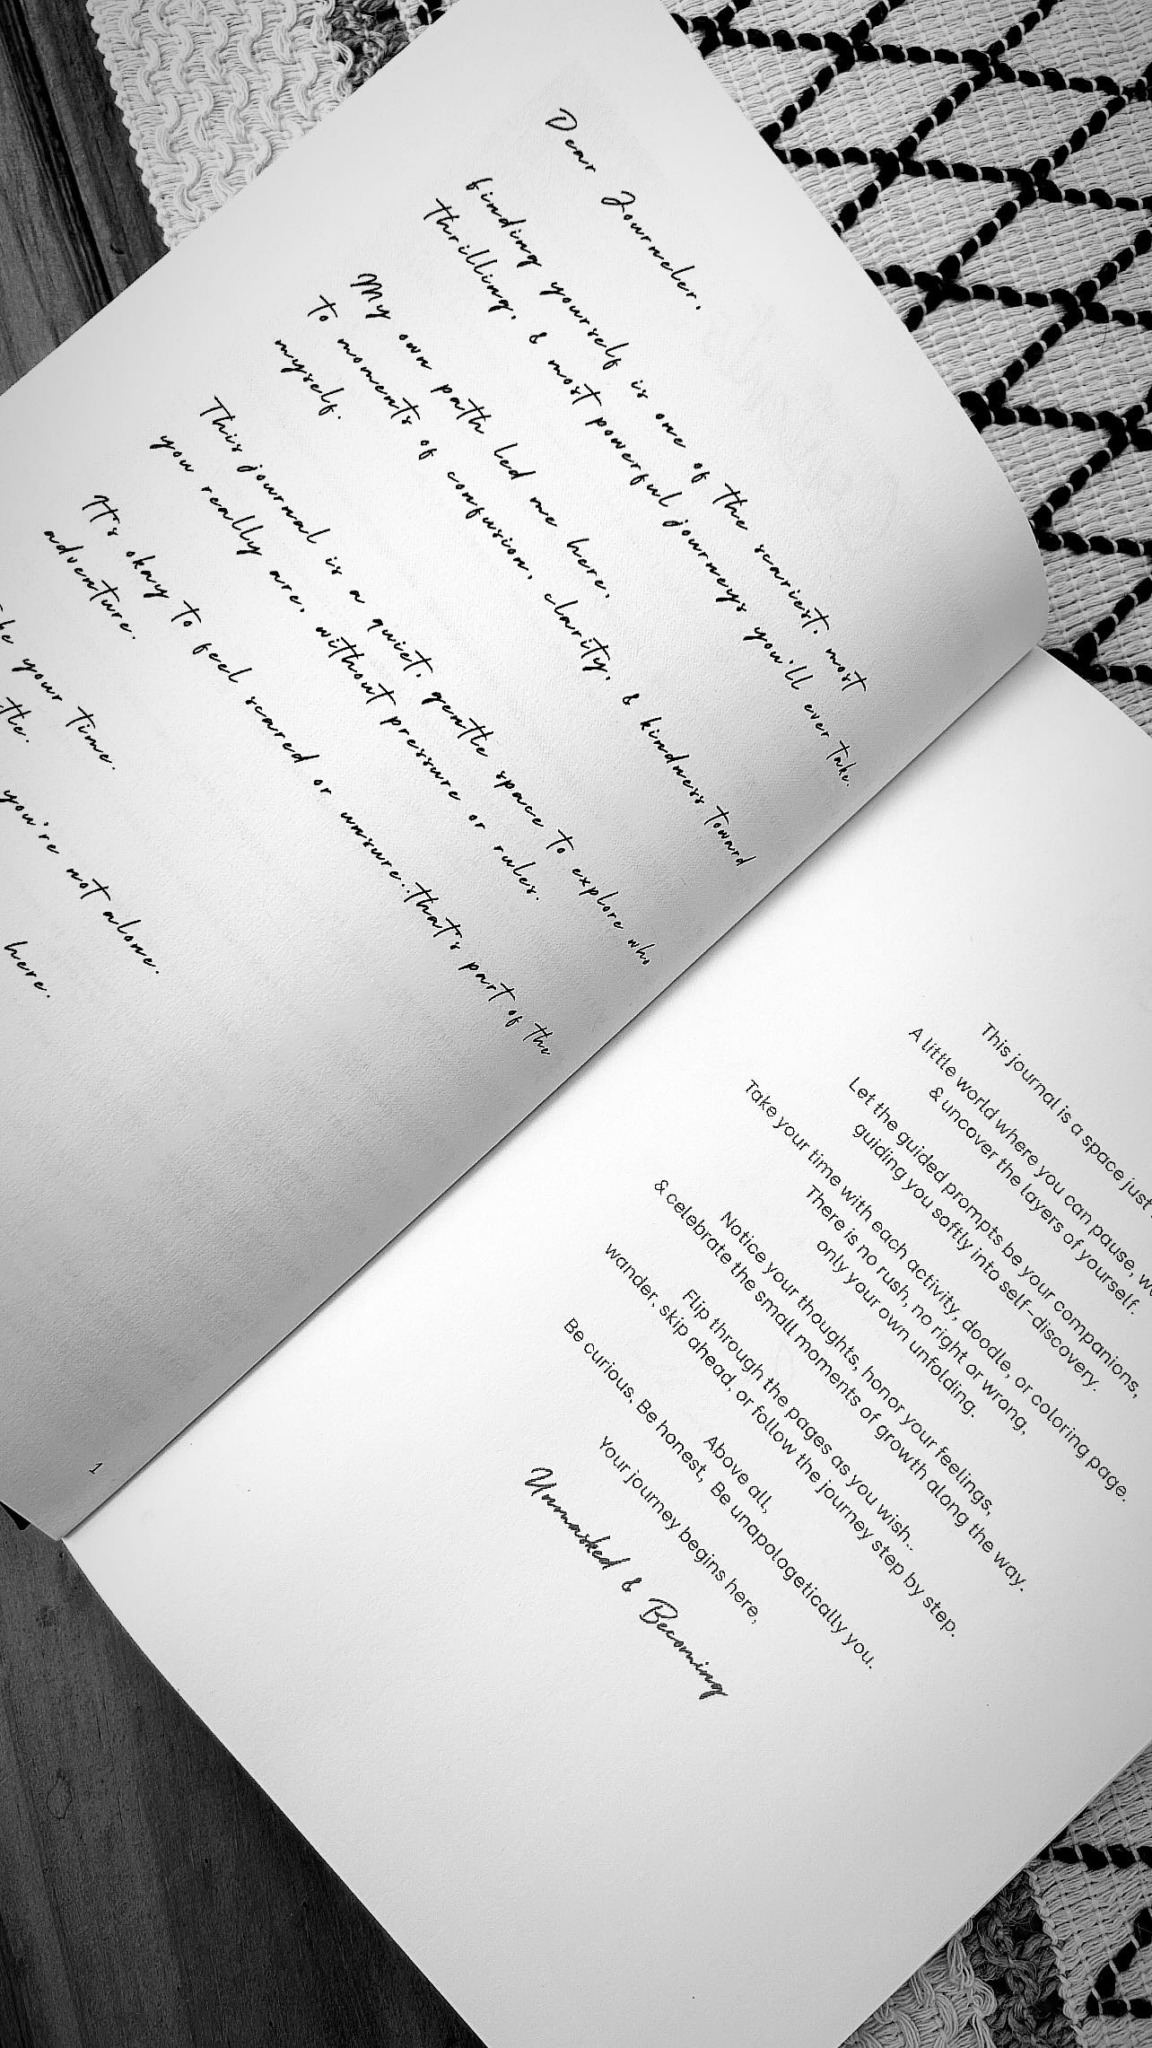 Dear Journeler,
finding yourself is one of the scariest, most
thrilling, & most powerful journeys you'll ever take.
My own path led me here,
to moments of confusion, clarity, & kindness toward
myself.
This journal is a quiet, gentle space to explore who
you really are, without pressure or rules.
It's okay to feel scared or unsure..that's part of the
adventure.
your time.
you're not alone.
here.
1
This journal is a space just
A little world where you can pause,
& uncover the layers of yourself.
Let the guided prompts be your companions,
guiding you softly into self-discovery.
Take your time with each activity, doodle, or coloring page.
There is no rush, no right or wrong,
only your own unfolding.
Notice your thoughts, honor your feelings,
& celebrate the small moments of growth along the way.
Flip through the pages as you wish..
wander, skip ahead, or follow the journey step by step.
Above all,
Be curious, Be honest, Be unapologetically you.
Your journey begins here,
Unmasked & Becoming